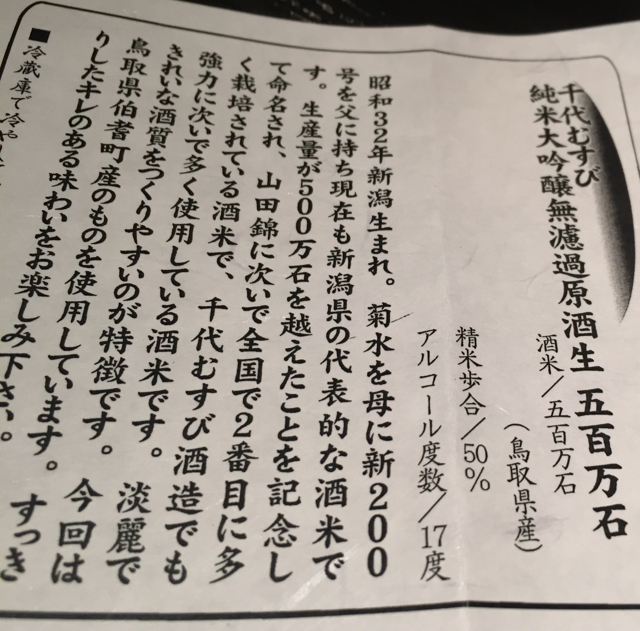 千代むすび
純米大吟醸無濾過原酒生 五百万石
酒米／五百万石
（鳥取県産）
精米歩合／50％
アルコール度数／17度
昭和32年新潟生まれ。菊水を母に新200
号を父に持ち現在も新潟県の代表的な酒米で
す。生産量が500万石を越えたことを記念し
て命名され、山田錦に次いで全国で2番目に多
く栽培されている酒米で、千代むすび酒造でも
強力に次いで多く使用している酒米です。淡麗で
きれいな酒質をつくりやすいのが特徴です。今回は
鳥取県伯耆町産のものを使用しています。すっき
りしたキレのある味わいをお楽しみ下さい。
■冷蔵庫で冷や